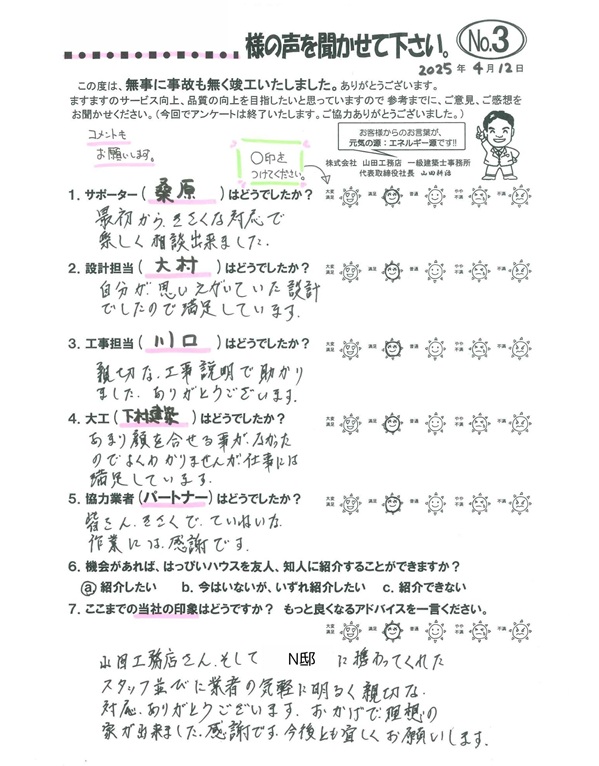 様の声を聞かせて下さい。 No.3
2025年4月12日
この度は、無事に事故も無く竣工いたしました。ありがとうございます。
ますますのサービス向上、品質の向上を目指したいと思っていますので 参考までに、ご意見、ご感想を
お聞かせください。（今回でアンケートは終了いたします。ご協力ありがとうございました。）
コメントも
お願いします。
〇印を
つけてください。
お客様からのお言葉が、
元気の源：エネルギー源です!!
株式会社 山田工務店 一級建築士事務所
代表取締役社長 山田新治
1. サポーター（ 桑原 ）はどうでしたか？
大変満足 満足 普通 やや不満 不満
最初から、きさくな対応で
楽しく相談出来ました。
2. 設計担当（ 大村 ）はどうでしたか？
大変満足 満足 普通 やや不満 不満
自分が思いえがいていた設計
でしたので満足しています。
3. 工事担当（ 川口 ）はどうでしたか？
大変満足 満足 普通 やや不満 不満
親切な、工事説明で助かり
ました。ありがとうございます。
4. 大工（ 下村建築 ）はどうでしたか？
大変満足 満足 普通 やや不満 不満
あまり顔を合せる事がなかった
のでよくわかりませんが、仕事には
満足しています。
5. 協力業者（パートナー）はどうでしたか？
大変満足 満足 普通 やや不満 不満
皆さん、きさくで、ていねいな、
作業には、感謝です。
6. 機会があれば、はっぴいハウスを友人、知人に紹介することができますか？
a. 紹介したい b. 今はいないが、いずれ紹介したい c. 紹介できない
7. ここまでの当社の印象はどうですか？ もっと良くなるアドバイスを一言ください。
大変満足 満足 普通 やや不満 不満
山田工務店さん、そして N邸 に携わってくれた
スタッフ並びに業者の気軽に明るく親切な、
対応、ありがとうございます。おかげで理想の
家が出来ました、感謝です。今後とも宜しくお願いします。